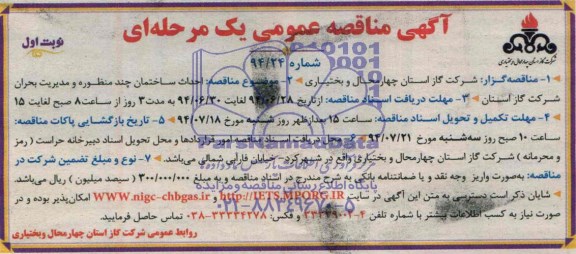 آگهی مناقصه عمومی یک مرحله‌ای
نوبت اول
شماره ۹۴/۲۴
شرکت گاز استان چهارمحال و بختیاری
۱- مناقصه‌گزار: شرکت گاز استان چهارمحال و بختیاری ۲- موضوع مناقصه: احداث ساختمان چند منظوره و مدیریت بحران
شرکت گاز استان ۳- مهلت دریافت اسناد مناقصه: از تاریخ ۹۴/۰۶/۲۸ لغایت ۹۴/۰۶/۳۰ به مدت ۳ روز از ساعت ۸ صبح لغایت ۱۵
۴- مهلت تکمیل و تحویل اسناد مناقصه: ساعت ۱۵ بعدازظهر روز شنبه مورخ ۹۴/۰۷/۱۸ ۵- تاریخ بازگشایی پاکات مناقصه:
ساعت ۱۰ صبح روز سه‌شنبه مورخ ۹۴/۰۷/۲۱ ۶- محل دریافت اسناد مناقصه امور قراردادها و محل تحویل اسناد دبیرخانه حراست (رمز
و محرمانه) شرکت گاز استان چهارمحال و بختیاری واقع در شهرکرد- خیابان فارابی شمالی می‌باشد. ۷- نوع و مبلغ تضمین شرکت در
مناقصه: به‌صورت واریز وجه نقد و یا ضمانتنامه بانکی به شرح مندرج در اسناد مناقصه و به مبلغ ۳۰۰/۰۰۰/۰۰۰ (سیصد میلیون) ریال می‌باشد.
شایان ذکر است دسترسی به متن این آگهی در سایت http://IETS.MPORG.IR و www.nigc-chbgas.ir امکان‌پذیر بوده و در
صورت نیاز به کسب اطلاعات بیشتر با شماره تلفن و فکس: ۳۳۳۳۴۲۷۸-۰۳۸ تماس حاصل فرمایید.
روابط عمومی شرکت گاز استان چهارمحال وبختیاری
پایگاه اطلاع رسانی مناقصه و مزایده
۰۲۱-۸۸۳۴۹۶۷۰-۵